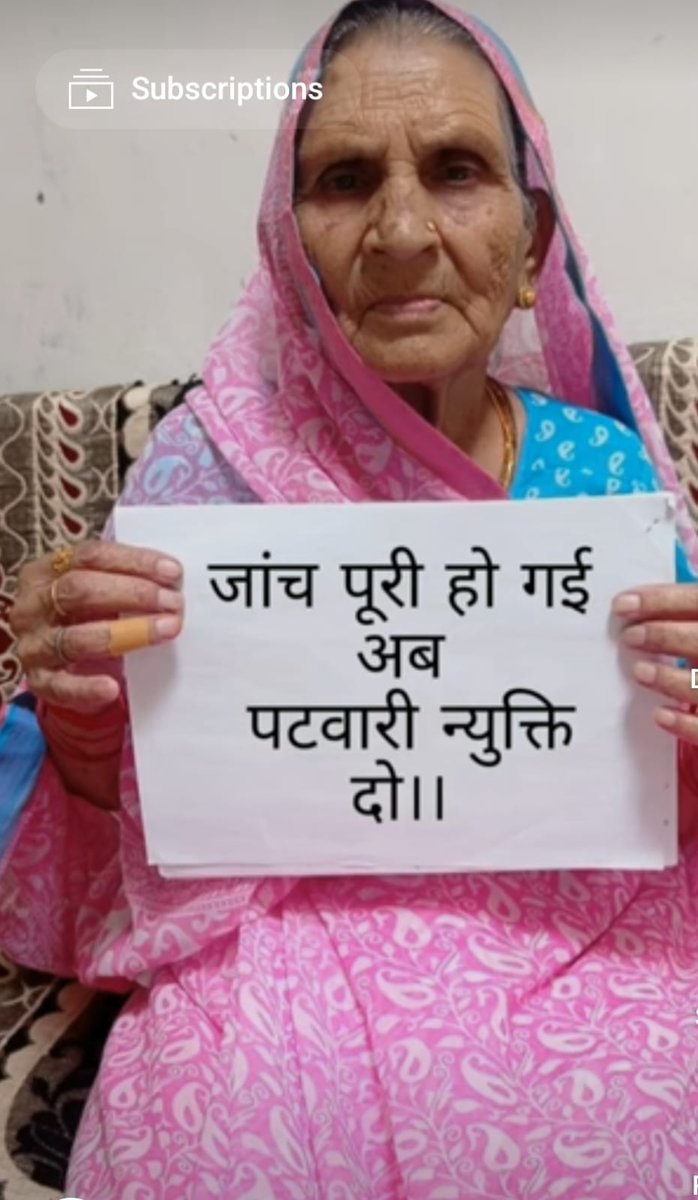 Subscriptions
जांच पूरी हो गई
अब
पटवारी न्युक्ति
दो।।